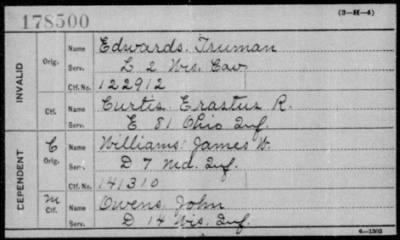 178500 (3—H—4)
INVALID
Orig. Name Edwards. Truman
Serv. L 2 Wis. Cav
Ctf. No. 122912
Ctf. Name Curtis Erastus R.
Serv. E 81 Ohio Inf
DEPENDENT
C Orig. Name Williams James W.
Serv. D 7 Md. Inf.
Ctf. No. 141310
M Ctf. Name Owens. John
Serv. D 14 Wis. Inf.
6—1303